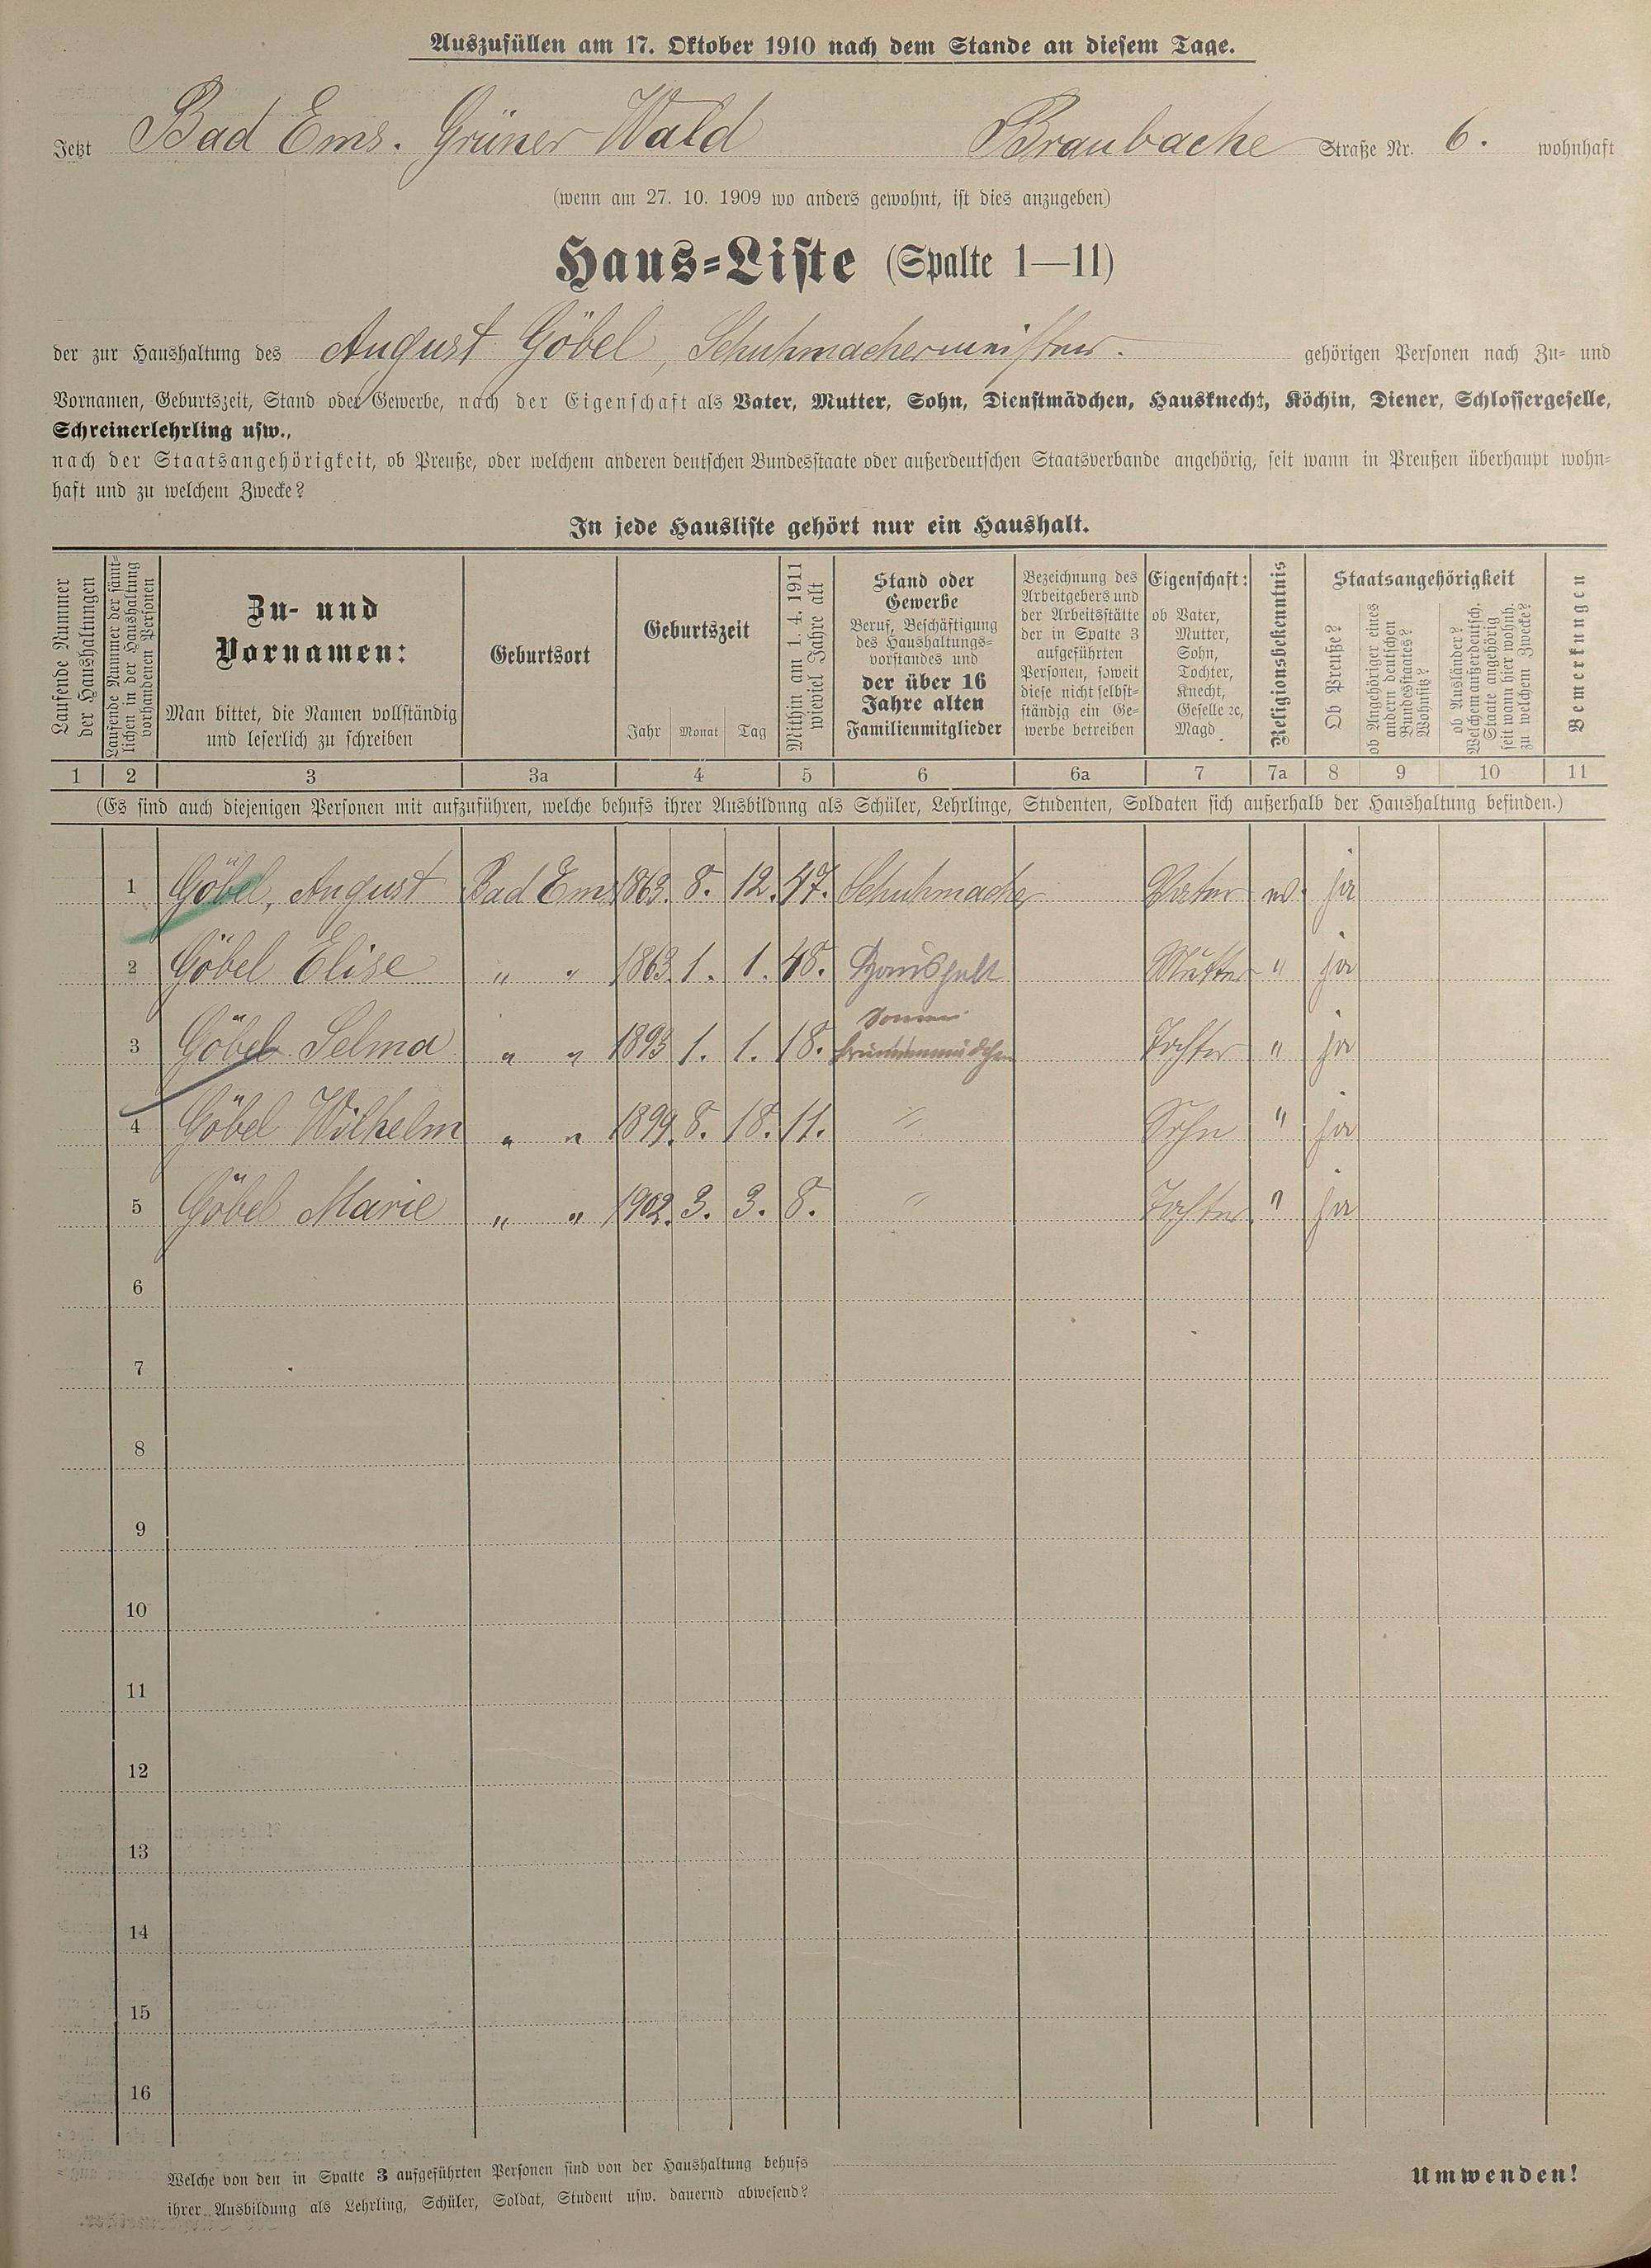 Auszufüllen am 17. Oktober 1910 nach dem Stande an diesem Tage.
Jetzt Bad Ems. Grüner Wald Braubache Straße Nr. 6. wohnhaft
(wenn am 27. 10. 1909 wo anders gewohnt, ist dies anzugeben)
Haus-Liste (Spalte 1—11)
der zur Haushaltung des August Göbel, Schuhmachermeister. gehörigen Personen nach Zu- und
Vornamen, Geburtszeit, Stand oder Gewerbe, nach der Eigenschaft als Vater, Mutter, Sohn, Dienstmädchen, Hausknecht, Köchin, Diener, Schlossergeselle,
Schreinerlehrling usw.,
nach der Staatsangehörigkeit, ob Preuße, oder welchem anderen deutschen Bundesstaate oder außerdeutschen Staatsverbande angehörig, seit wann in Preußen überhaupt wohn-
haft und zu welchem Zwecke?
In jede Hausliste gehört nur ein Haushalt.
Laufende Nummer
der Haushaltungen
Laufende Nummer der sämt-
lichen in der Haushaltung
vorhandenen Personen
Zu- und
Vornamen:
Man bittet, die Namen vollständig
und leserlich zu schreiben
Geburtsort
Geburtszeit
Jahr Monat Tag
Mithin am 1. 4. 1911
wieviel Jahre alt
Stand oder
Gewerbe
Beruf, Beschäftigung
des Haushaltungs-
vorstandes und
der über 16
Jahre alten
Familienmitglieder
Bezeichnung des
Arbeitgebers und
der Arbeitsstätte
der in Spalte 3
aufgeführten
Personen, soweit
diese nicht selbst-
ständig ein Ge-
werbe betreiben
Eigenschaft:
ob Vater,
Mutter,
Sohn,
Tochter,
Knecht,
Geselle ꝛc,
Magd
Religionsbekenntnis
Staatsangehörigkeit
Ob Preuße?
ob Angehöriger eines
andern deutschen
Bundesstaates?
Wohnsitz?
ob Ausländer?
Welchem außerdeutsch.
Staate angehörig
seit wann hier wohnh.
zu welchem Zwecke?
Bemerkungen
1 2 3 3a 4 5 6 6a 7 7a 8 9 10 11
(Es sind auch diejenigen Personen mit aufzuführen, welche behufs ihrer Ausbildung als Schüler, Lehrlinge, Studenten, Soldaten sich außerhalb der Haushaltung befinden.)
1 Göbel, August Bad Ems 1863. 8. 12. 47. Schuhmacher Vater ev. ja
2 Göbel Elise " " 1863. 1. 1. 48. Haushalt Mutter " ja
3 Göbel Selma " " 1893 1. 1. 18. Brunnenmädchen Tochter " ja
4 Göbel Wilhelm " " 1899. 8. 18. 11. " Sohn " ja
5 Göbel Marie " " 1902. 3. 3. 8. " Tochter " ja
6
7
8
9
10
11
12
13
14
15
16
Welche von den in Spalte 3 aufgeführten Personen sind von der Haushaltung behufs
ihrer Ausbildung als Lehrling, Schüler, Soldat, Student usw. dauernd abwesend?
Umwenden!